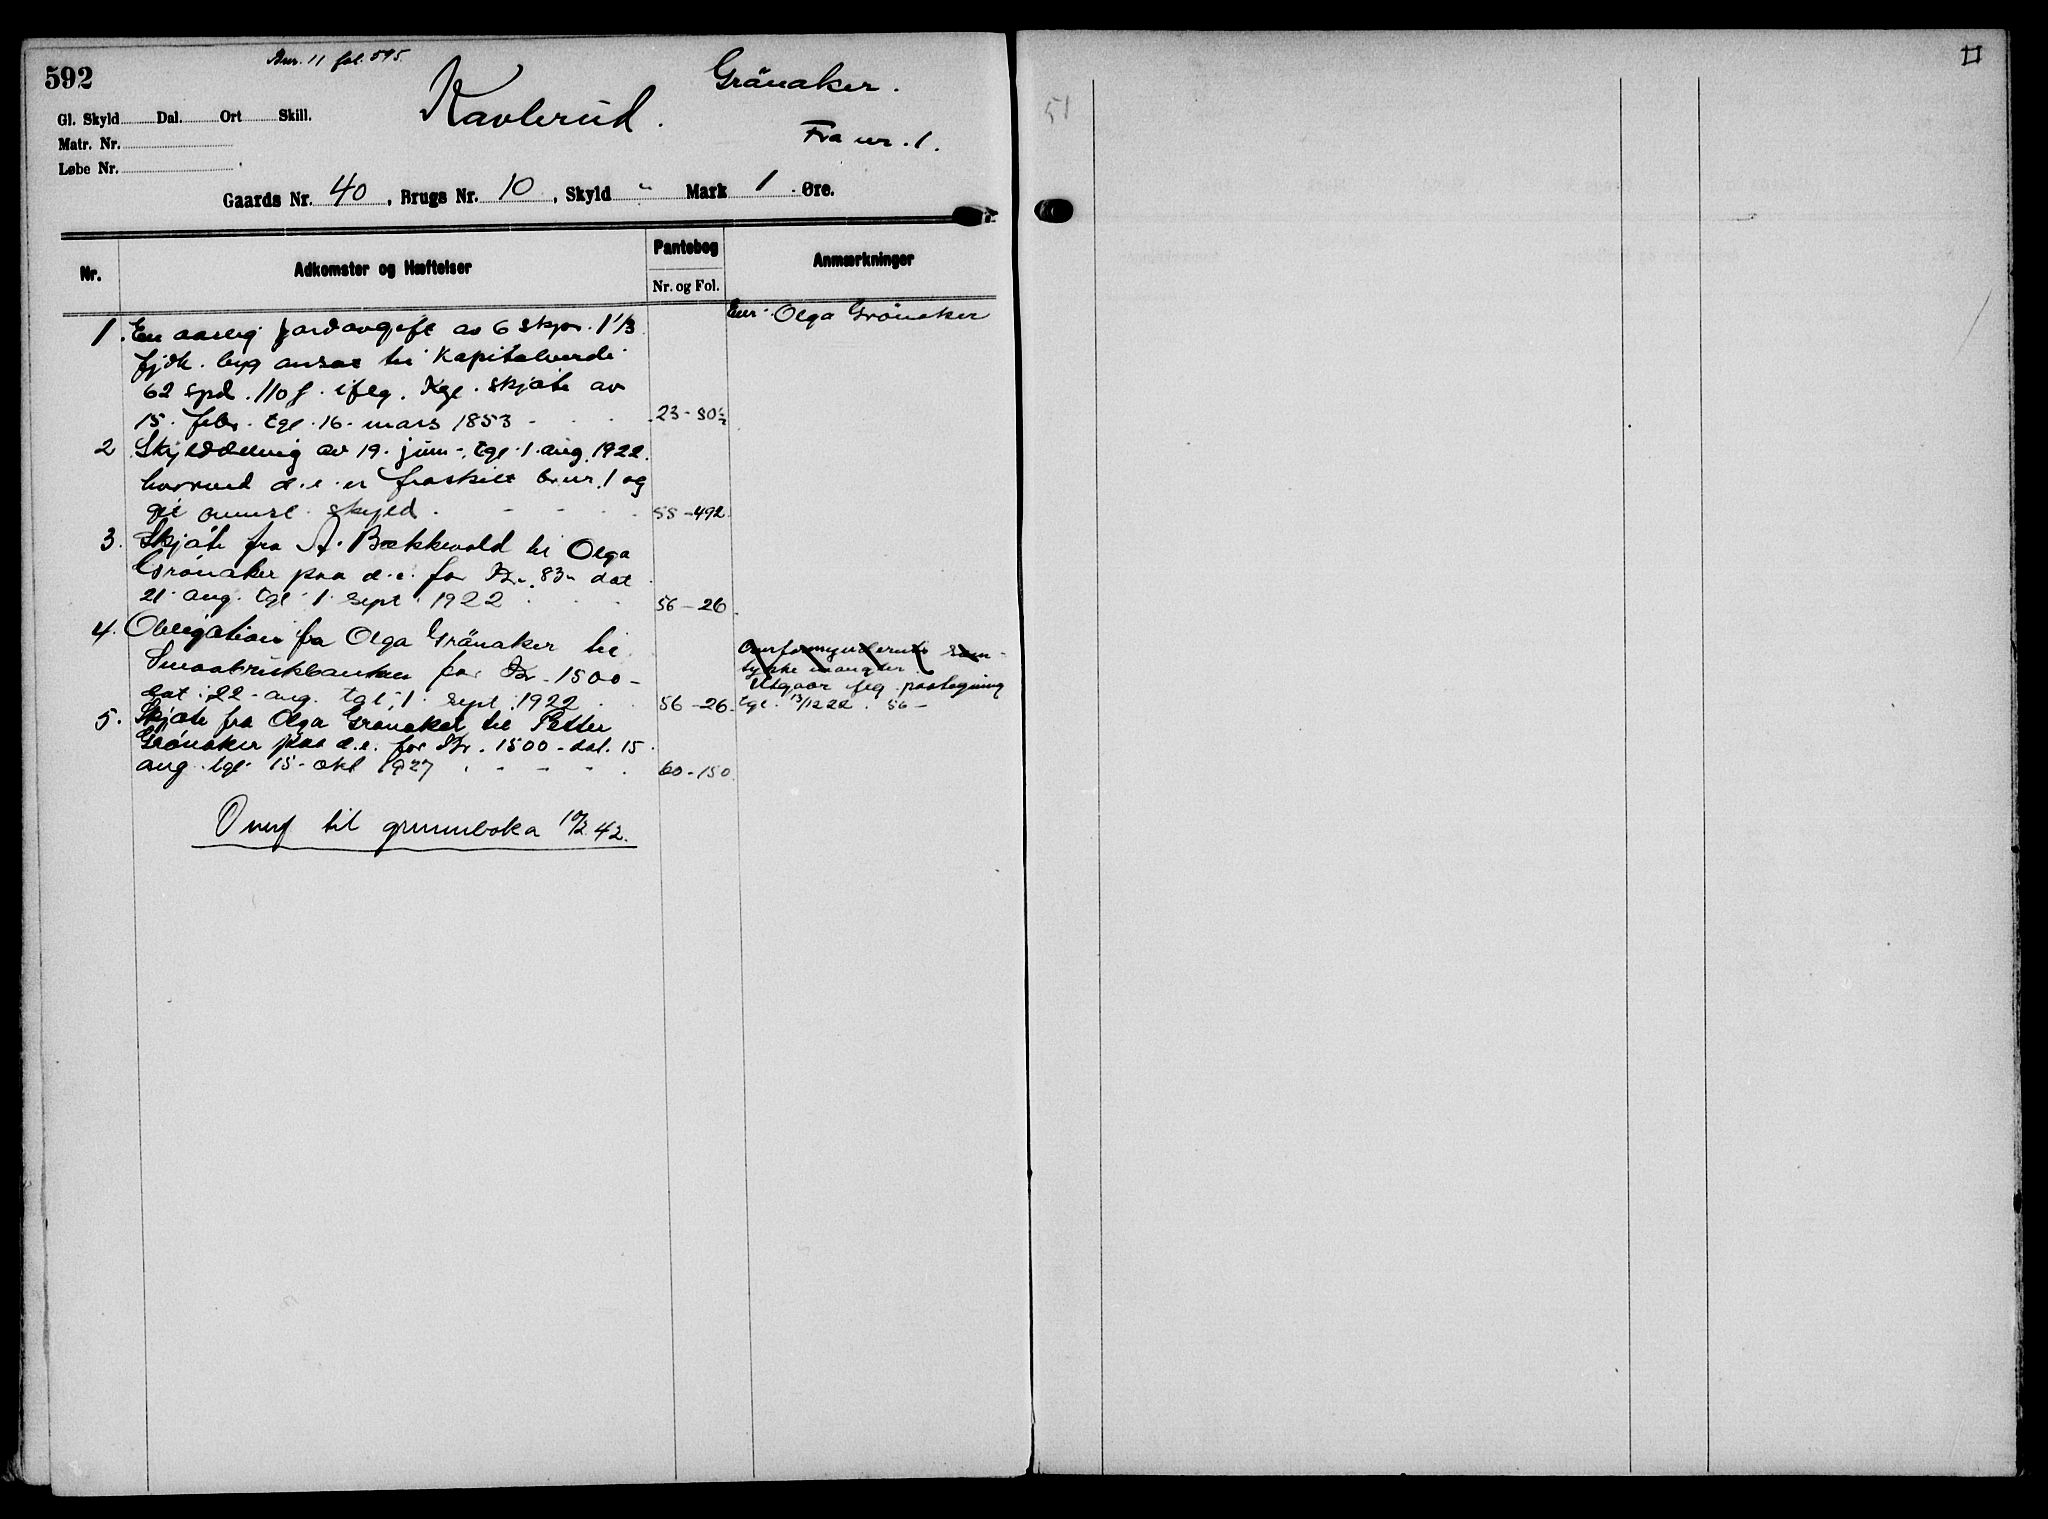 592
Bnr. 11 fol. 595.
Kavlerud.
Grönaker.
Fra nr. 1.
Gl. Skyld Dal. Ort Skill.
Matr. Nr.
Løbe Nr.
Gaards Nr. 40, Brugs Nr. 10, Skyld " Mark 1 Øre.
Nr. Adkomster og Hæftelser Pantebog Nr. og Fol. Anmærkninger
Eier: Olga Grönaker
1. En aarlig jordavgift av 6 skjpr. 1 1/3
fjdk. byg ansat til Kapitalverdi
62 spd. 110 s. ifølg. Kgl. skjøte av
15. febr. tgl. 16. mars 1853 23-
2 Skylddeling av 19. juni, tgl. 1. aug. 1922.
hvorved d. e. er fraskilt bnr. 1 og
git anmst. skyld. 55-492.
3. Skjøte fra A. Bækkevold til Olga
Grönaker paa d. e. for Kr. 83- dat
21. aug. tgl. 1 sept. 1922 56-26
4. Obligation fra Olga Grönaker til
Smaabrukbanken for Kr. 1500-
dat. 22. aug. tgl. 1. sept. 1922 56-26.
Overformynderiets sam-
tykke mangler
Utgaar flg. paategning
tgl. 13/12 22. 56-
5. Skjøte fra Olga Grönaker til Petter
Grönaker paa d. e. for Kr. 1500- dat. 15
aug. tgl. 15. okt 1927 60-150.
Overf til grunnboka 10/2 42.
51